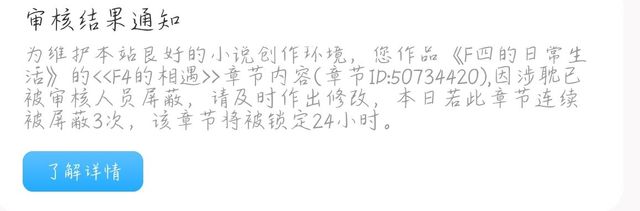 审核结果通知
为维护本站良好的小说创作环境，您作品《F四的日常生
活》的<<F4的相遇>>章节内容(章节ID:50734420),因涉耽已
被审核人员屏蔽，请及时作出修改，本日若此章节连续
被屏蔽3次，该章节将被锁定24小时。
了解详情